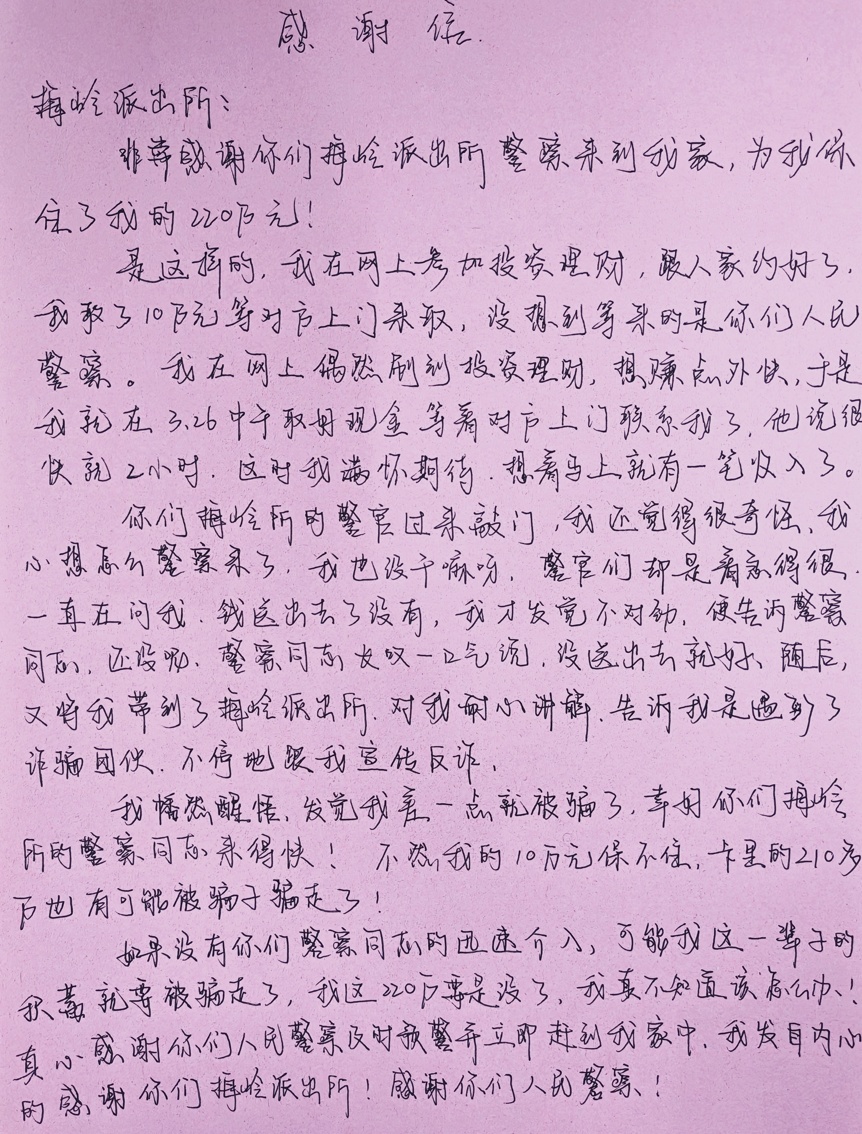 感谢信.
梅岭派出所：
非常感谢你们梅岭派出所警察来到我家，为我保
住了我的220万元！
是这样的，我在网上参加投资理财，跟人家约好了，
我取了10万元等对方上门来取，没想到等来的是你们人民
警察。我在网上偶然刷到投资理财，想赚点外快，于是
我就在3.26中午取好现金等着对方上门联系我了，他说很
快就2小时．这时我满怀期待．想着马上就有一笔收入了。
你们梅岭所的警官过来敲门，我还觉得很奇怪、我
心想怎么警察来了．我也没干嘛呀，警官们却是着急得很．
一直在问我．钱送出去了没有，我才发觉不对劲，便告诉警察
同志，还没呦．警察同志大叹一口气说，没送出去就好、随后，
又将我带到了梅岭派出所．对我耐心讲解．告诉我是遇到了
诈骗团伙．不停地跟我宣传反诈．
我幡然醒悟．发觉我差一点就被骗了．幸好你们梅岭
所的警察同志来得快！不然我的10万元保不住，卡里的210多
万也有可能被骗子骗走了！
如果没有你们警察同志的迅速介入，可能我这一辈子的
积蓄就要被骗走了，我这220万要是没了，我真不知道该怎么办！
真心感谢你们人民警察及时预警并立即赶到我家中．我发自内心
的感谢你们梅岭派出所！感谢你们人民警察！